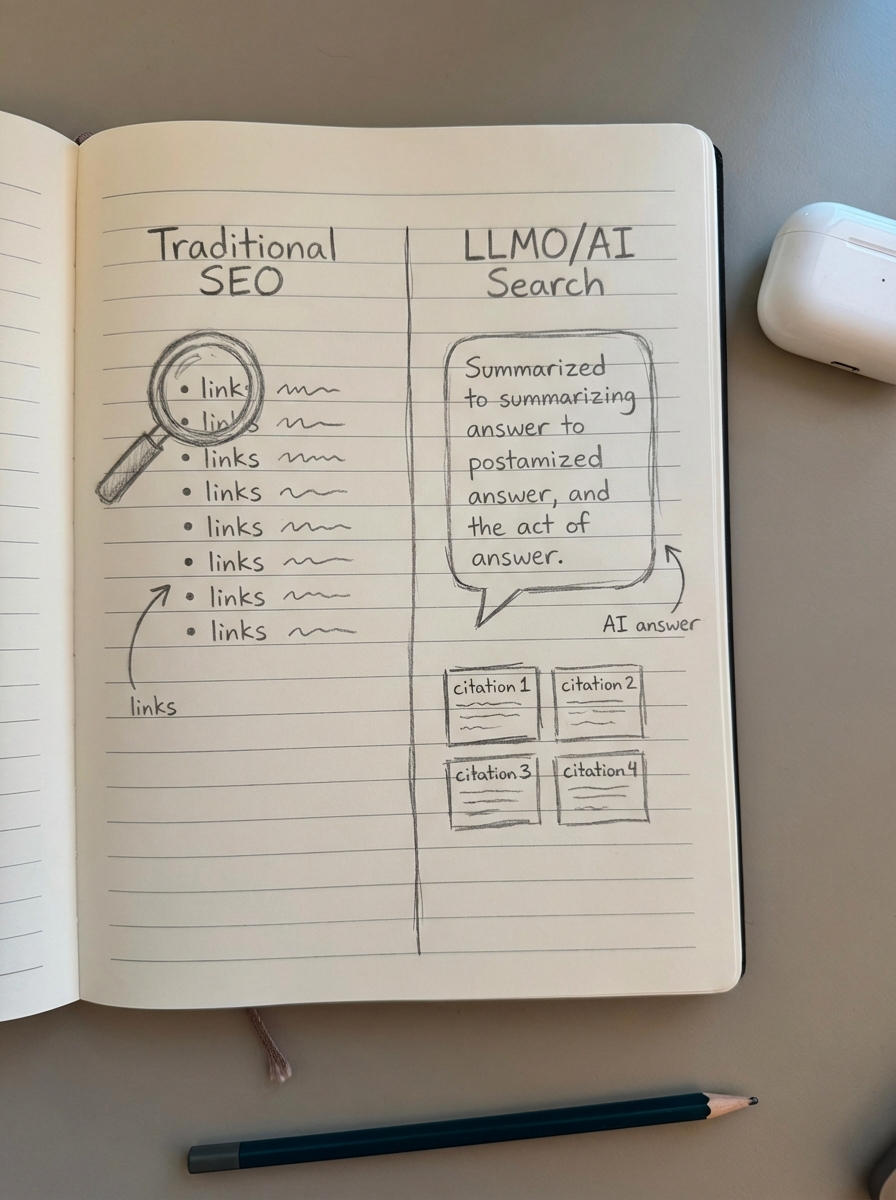 Traditional
SEO
• links
• links
• links
• links
• links
• links
• links
• links
links
LLMO/AI
Search
Summarized
to summarizing
answer to
postamized
answer, and
the act of
answer.
AI answer
citation 1
citation 2
citation 3
citation 4